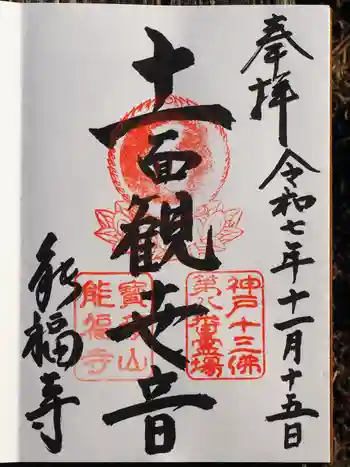 奉拝
令和七年十一月十五日
十一面観世音
能福寺
神戸十三佛
第八番霊場
能福寺